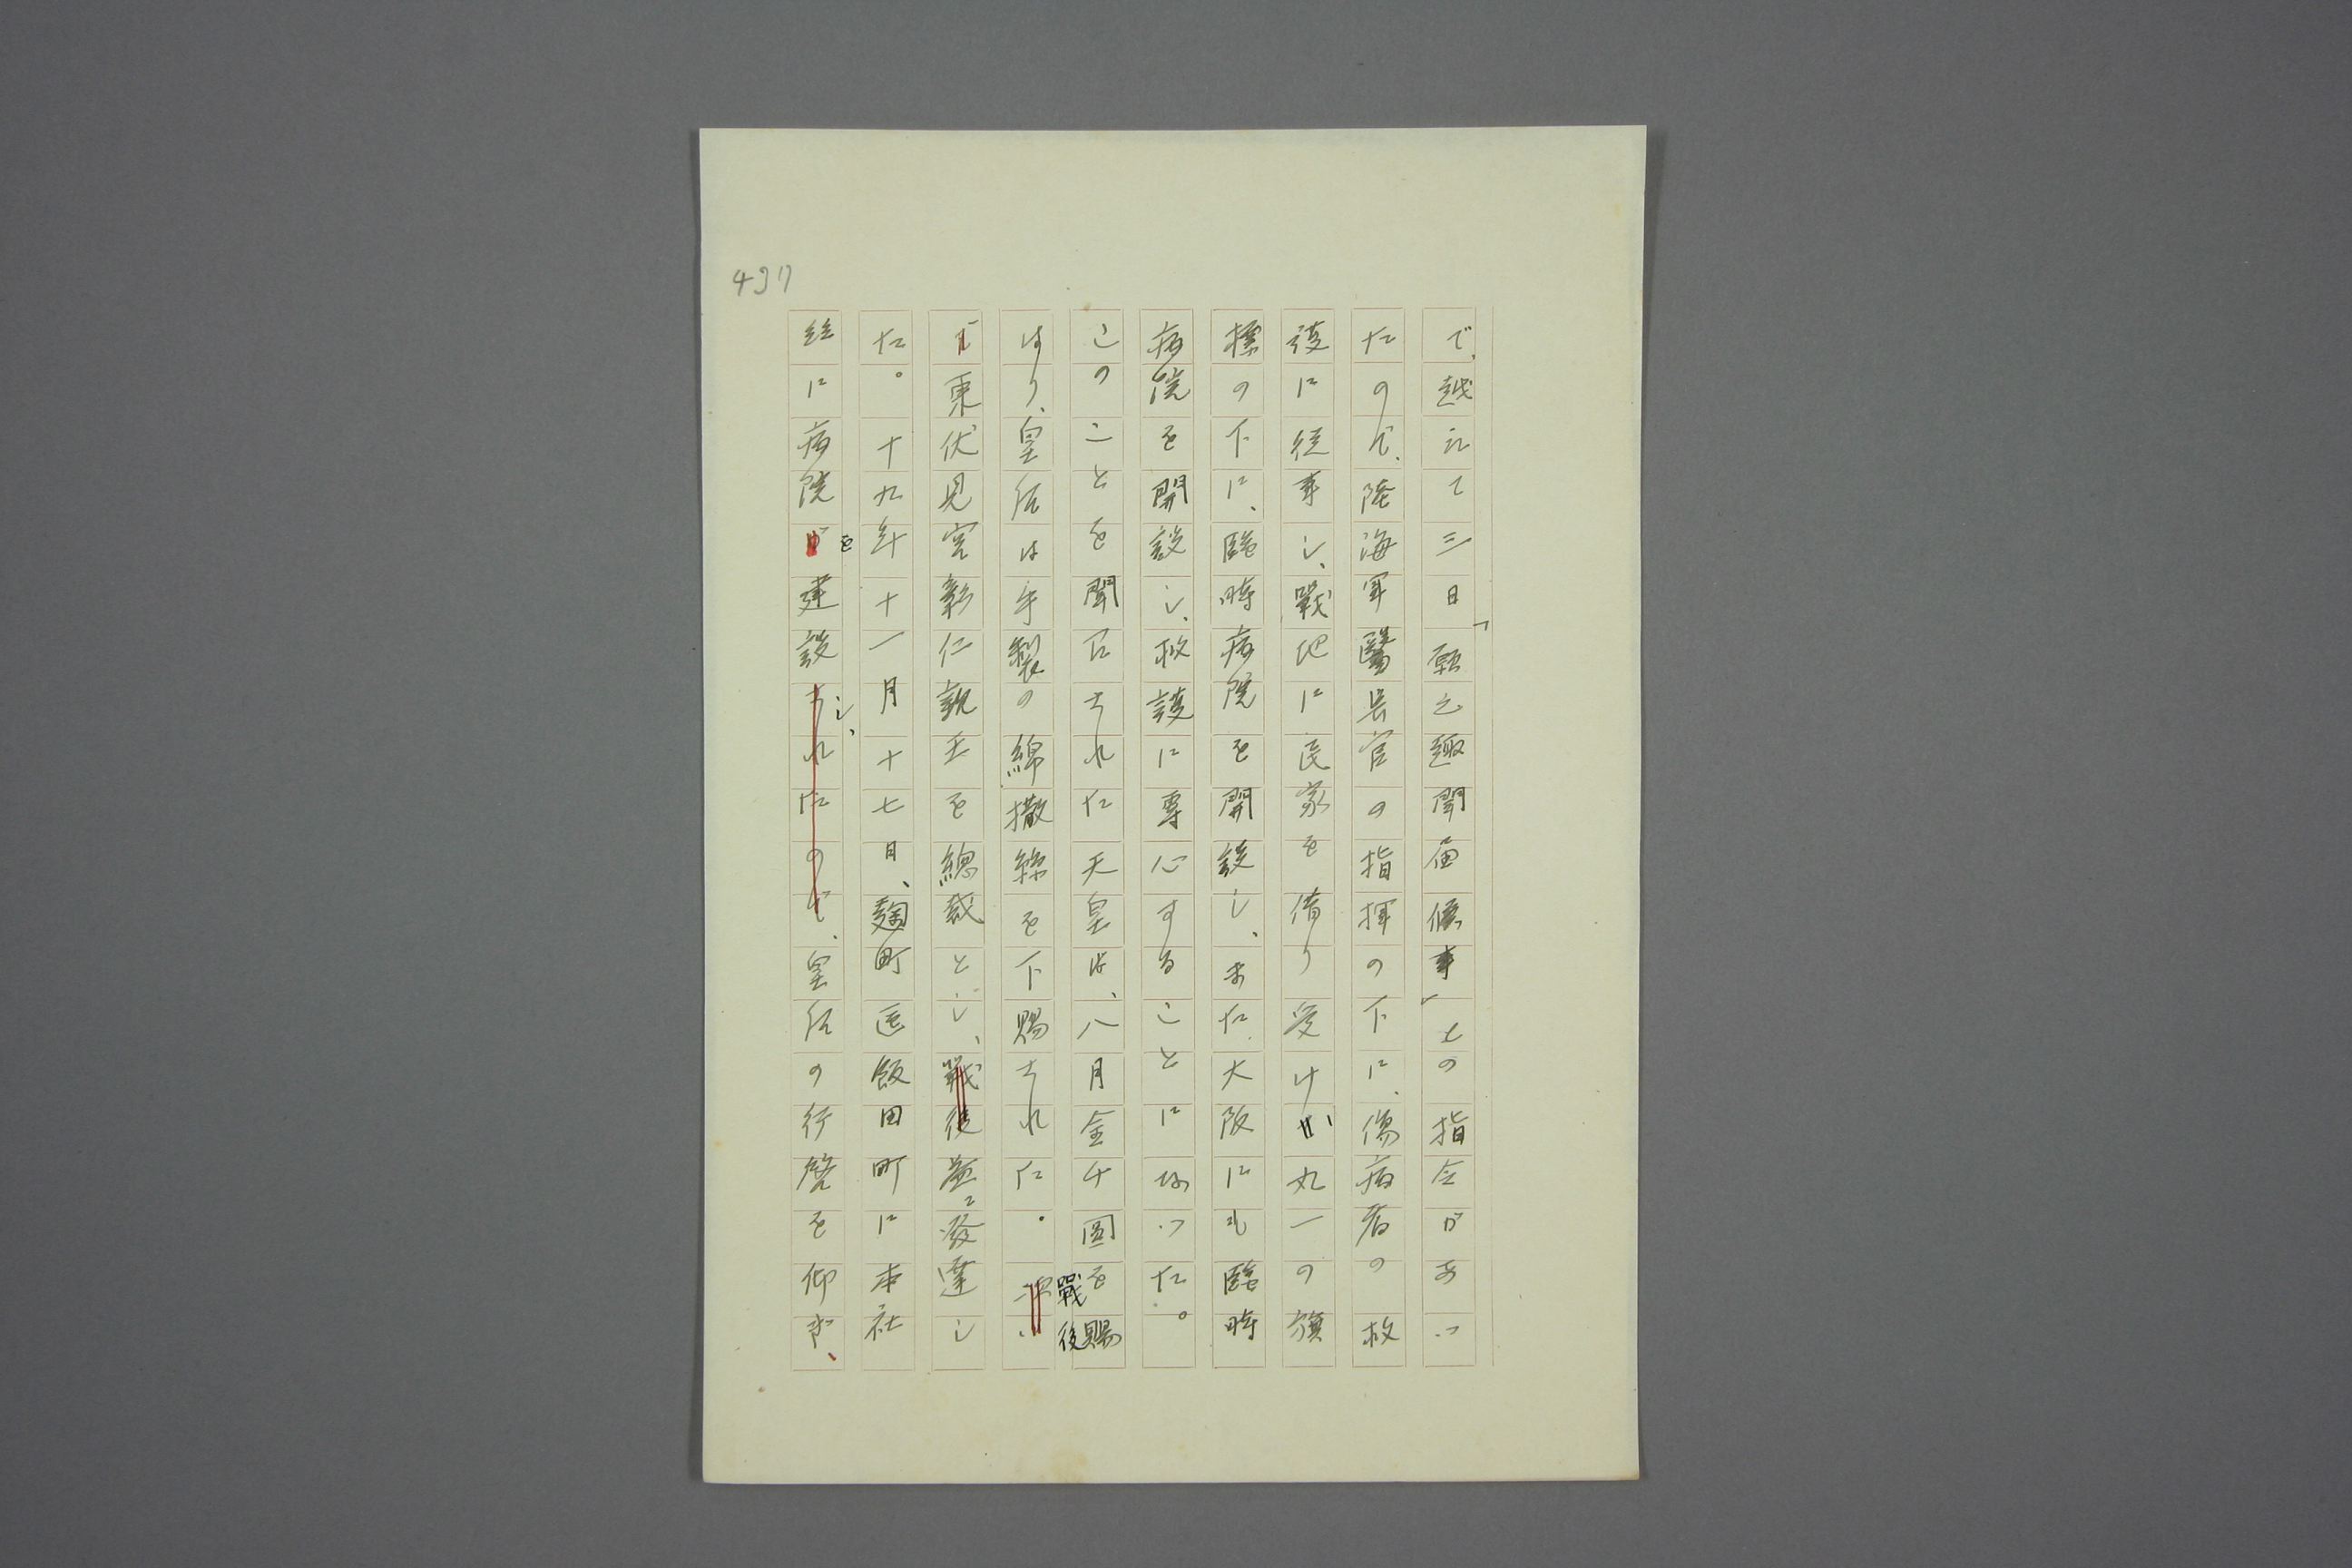 497
で、越えて三日「願之趣聞届候事」との指令があつ
たので、陸海軍醫長官の指揮の下に、傷病者の救
護に從事し、戰地に民家を借り受け、丸一の旗
標の下に、臨時病院を開設し、また大阪にも臨時
病院を開設し、救護に專心することになつた。
このことを聞召された天皇は、八月金千圓を賜
はり、皇后は手製の綿撒絲を下賜された。戰後
東伏見宮彰仁親王を總裁とし、益々發達し
た。十九年十一月十七日、麹町區飯田町に本社
並に病院を建設し、皇后の行啓を仰ぎ、